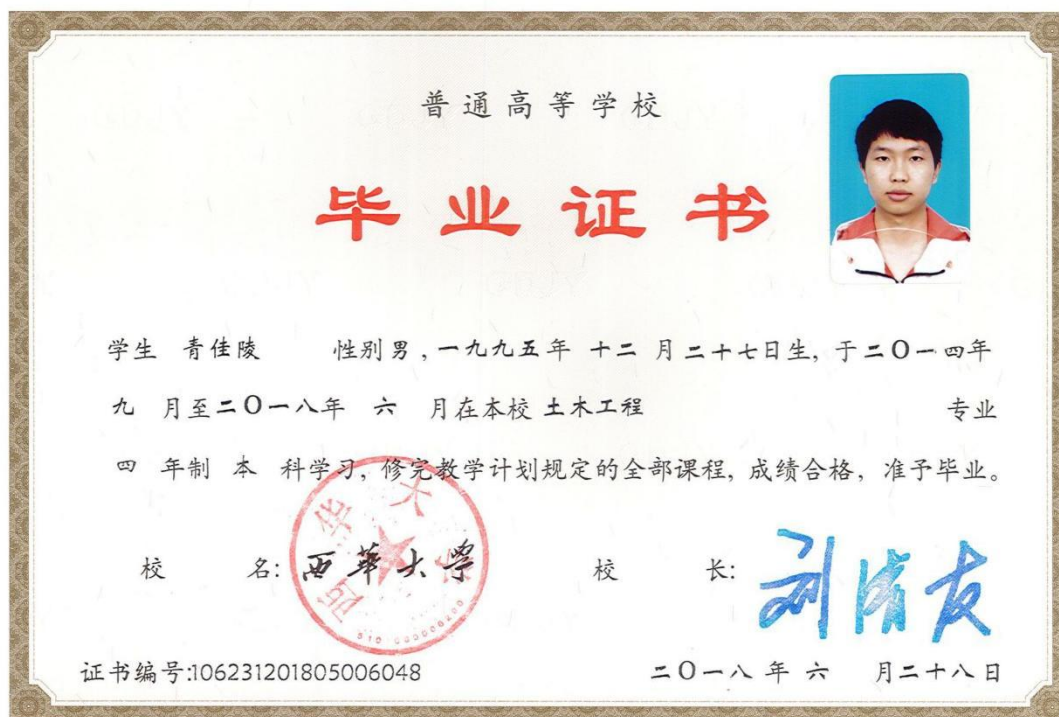 普通高等学校
毕业证书
学生 青佳陵 性别男,一九九五年 十二 月二十七日生,于二〇一四年
九 月至二〇一八年 六 月在本校 土木工程 专业
四 年制 本 科学习,修完教学计划规定的全部课程,成绩合格,准予毕业。
校 名: 西華大学
西华大学
校 长: 刘清友
证书编号:106231201805006048
二〇一八 年 六 月二十八日